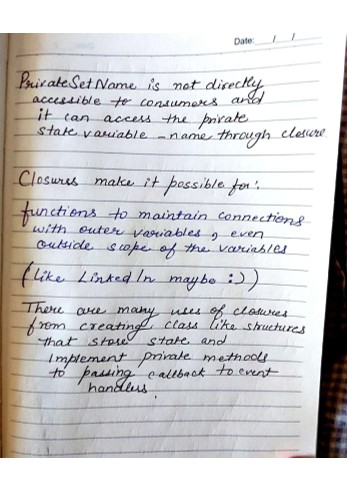 Date: / /
PrivateSetName is not directly
accessible to consumers and
it can access the private
state variable _name through closure
Closures make it possible for:
functions to maintain connections
with outer variables, even
outside scope of the variables
(Like LinkedIn maybe :))
There are many uses of closures
from creating class like structures
that store state and
implement private methods
to passing callback to event
handlers.